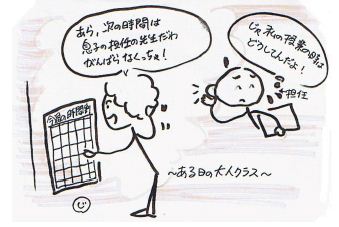 あら、次の時間は
息子の担任の先生だわ
がんばらなくっちゃ!
じゃ私の授業の時は
どうしてんだよ!
担任
今週の時間割
~ある日の大人クラス~